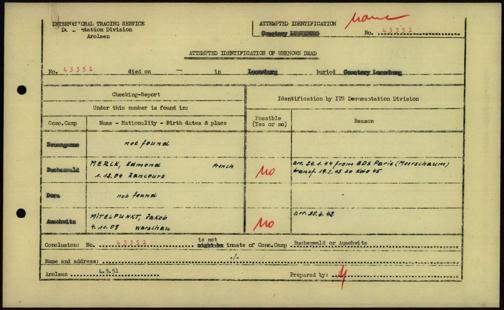 INTERNATIONAL TRACING SERVICE
Documentation Division
Arolsen
ATTEMPTED IDENTIFICATION
Cemetery
No. 43352
ATTEMPTED IDENTIFICATION OF UNKNOWN DEAD
No. 43352 died on — in buried Cemetery
Checking-Report
Under this number is found in:
Identification by ITS Documentation Division
Conc.Camp
Name - Nationality - Birth dates & place
Possible
(Yes or no)
Reason
Neuengamme
not found
Buchenwald
MERCK, Edmond French
1.12.04
no
arr. 22.1.44 from BDS Paris (Meerschaum)
transf. 19.2.45 to Kdo 45
Dora
not found
Auschwitz
MITELPUNKT, Jakob
4.11.09 Warschau
no
arr. 30.6.42
Conclusion: No. 43352 is not
might be inmate of Conc.Camp Buchenwald or Auschwitz
Name and address: -/-
Arolsen 4.9.51
Prepared by: